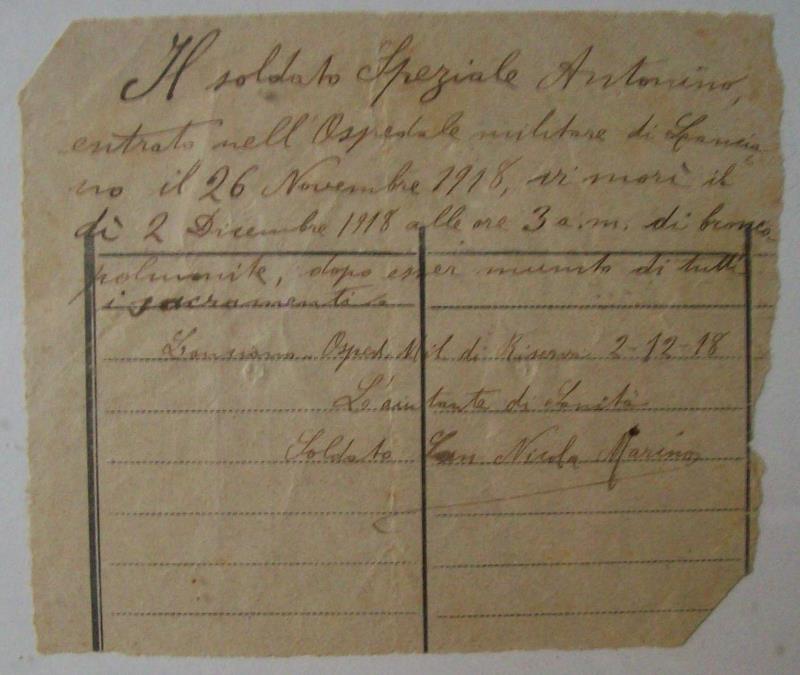 Il soldato Speziale Antonino,
entrato nell'Ospedale militare di Lancia-
no il 26 Novembre 1918, vi morì il
dì 2 Dicembre 1918 alle ore 3 a.m. di bronco-
polmonite, dopo esser munito di tutti
i sacramenti
Lanciano. Osped. Mil di Riserva 2-12-18
L'aiutante di Sanità
Soldato Nicola Marino